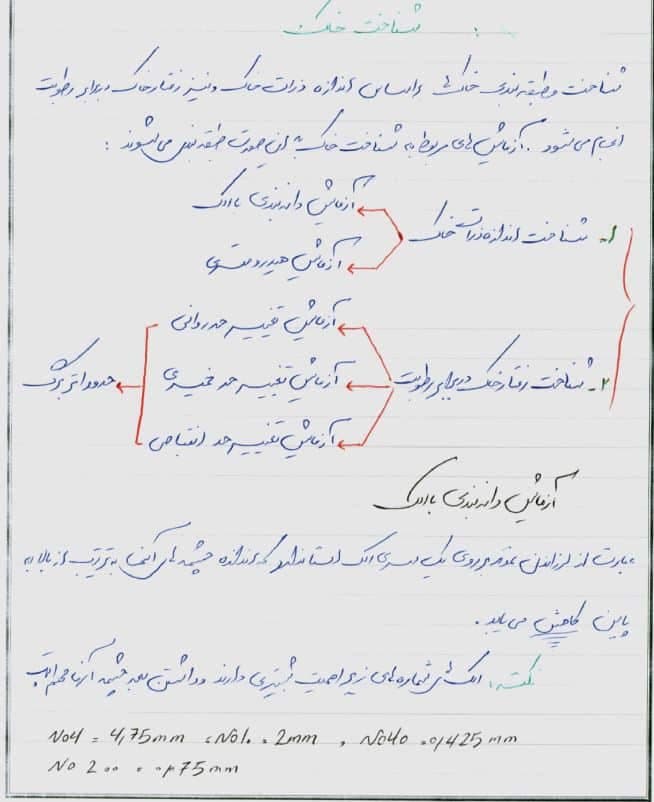 شناخت خاک
شناخت و طبقه بندی خاک ها براساس اندازه ذرات خاک و نیز رفتار خاک در برابر رطوبت
انجام می شود. آزمایش های مربوط به شناخت خاک به این صورت طبقه بندی می شوند:
آزمایش دانه بندی با الک
۱- شناخت اندازه ذرات خاک
آزمایش هیدرومتری
آزمایش تعیین حد روانی
۲- شناخت رفتار خاک در برابر رطوبت
آزمایش تعیین حد خمیری
حدود اتربرگ
آزمایش تعیین حد انقباض
آزمایش دانه بندی با الک
عبارت از لرزاندن نمونه بر روی یک سری الک استاندارد که اندازه چشمه های آنها به ترتیب از بالا به
پایین کاهش می یابد.
نکته: الک های شماره های زیر اهمیت بیشتری دارند و دانستن بعد چشمه آنها مهم است
No4 = 4,75mm , No10 = 2mm , No40 = 0,425 mm
No 200 = 0,075mm